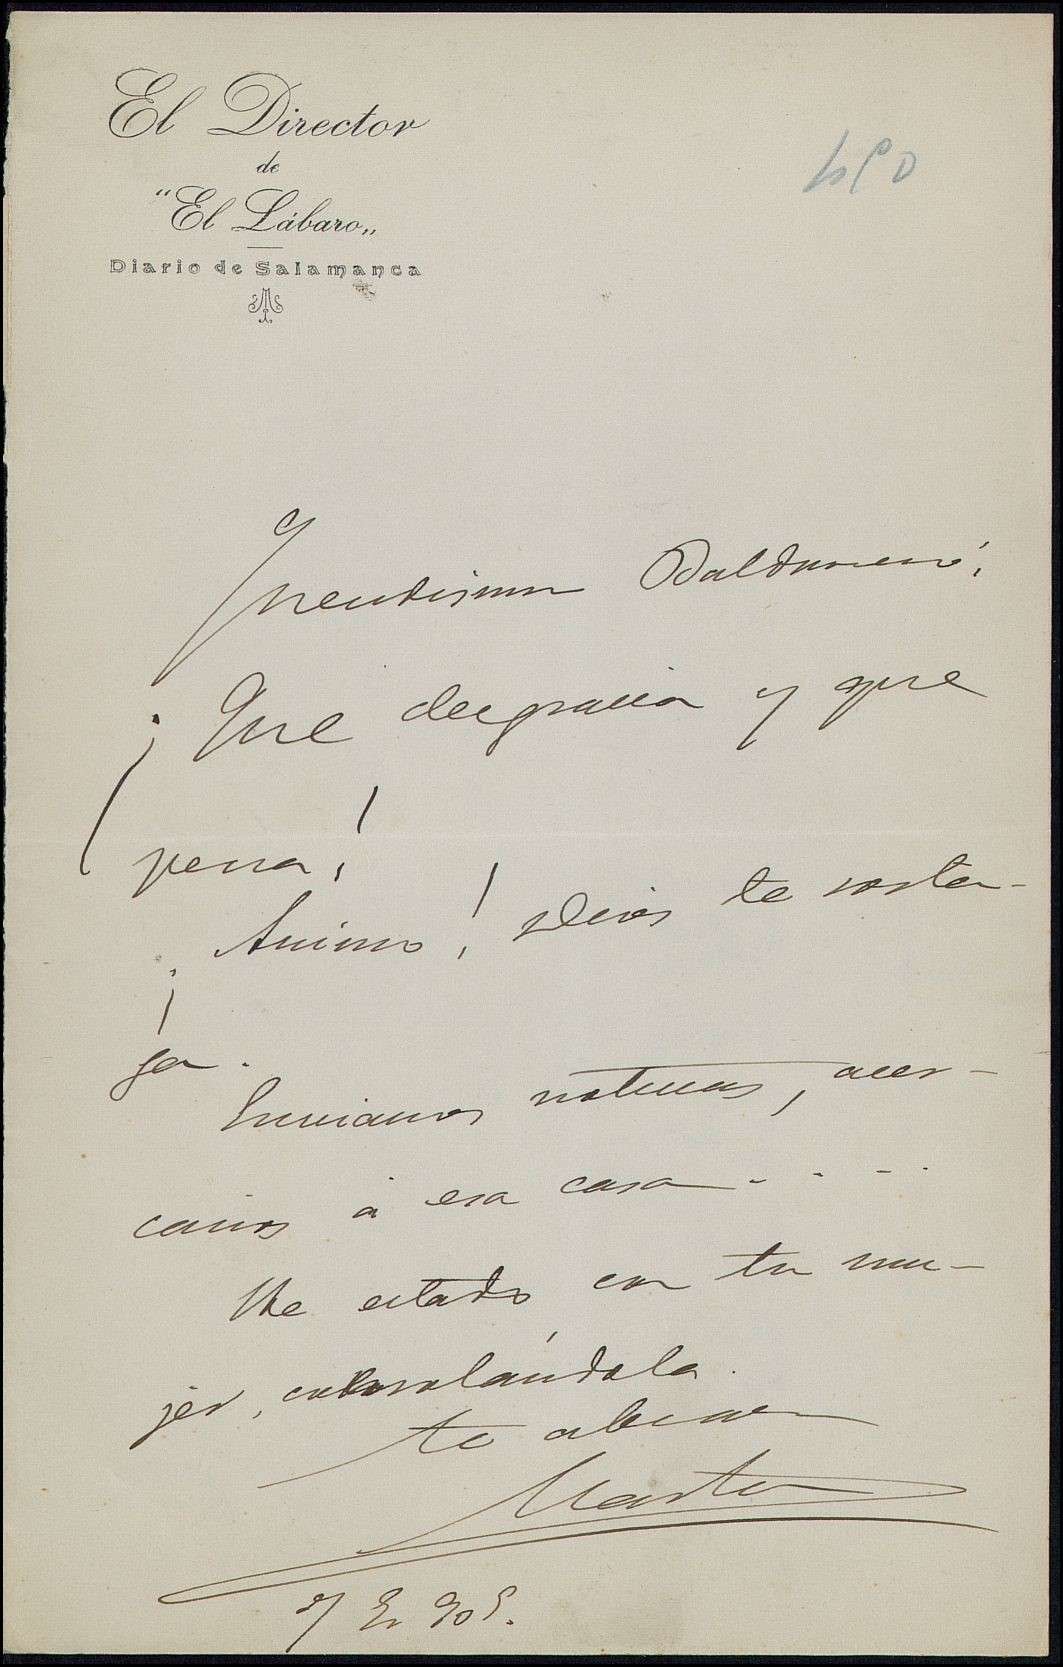 El Director
de
"El Lábaro„
Diario de Salamanca
Queridisimo Baldomero,
¡Que desgracia y que
pena!
¡Animo! Dios te sosten-
ga.
Envianos noticias, acer-
canos á esa casa....
He estado con tu mu-
jer, consolándola.
te abraza
Martin